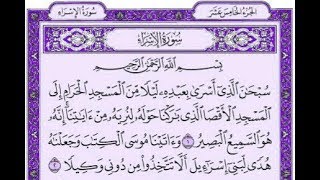 سُورَةُ الإِسۡرَاءِ الجُزۡءُ الخَامِسَ عَشَرَ
سُورَةُ الإِسۡرَاءِ
بِسۡمِ ٱللَّهِ ٱلرَّحۡمَٰنِ ٱلرَّحِيمِ
سُبۡحَٰنَ ٱلَّذِيٓ أَسۡرَىٰ بِعَبۡدِهِۦ لَيۡلٗا مِّنَ ٱلۡمَسۡجِدِ ٱلۡحَرَامِ إِلَى
ٱلۡمَسۡجِدِ ٱلۡأَقۡصَا ٱلَّذِي بَٰرَكۡنَا حَوۡلَهُۥ لِنُرِيَهُۥ مِنۡ ءَايَٰتِنَآۚ إِنَّهُۥ
هُوَ ٱلسَّمِيعُ ٱلۡبَصِيرُ ١ وَءَاتَيۡنَا مُوسَى ٱلۡكِتَٰبَ وَجَعَلۡنَٰهُ
هُدٗى لِّبَنِيٓ إِسۡرَٰٓءِيلَ أَلَّا تَتَّخِذُواْ مِن دُونِي وَكِيلٗا ٢